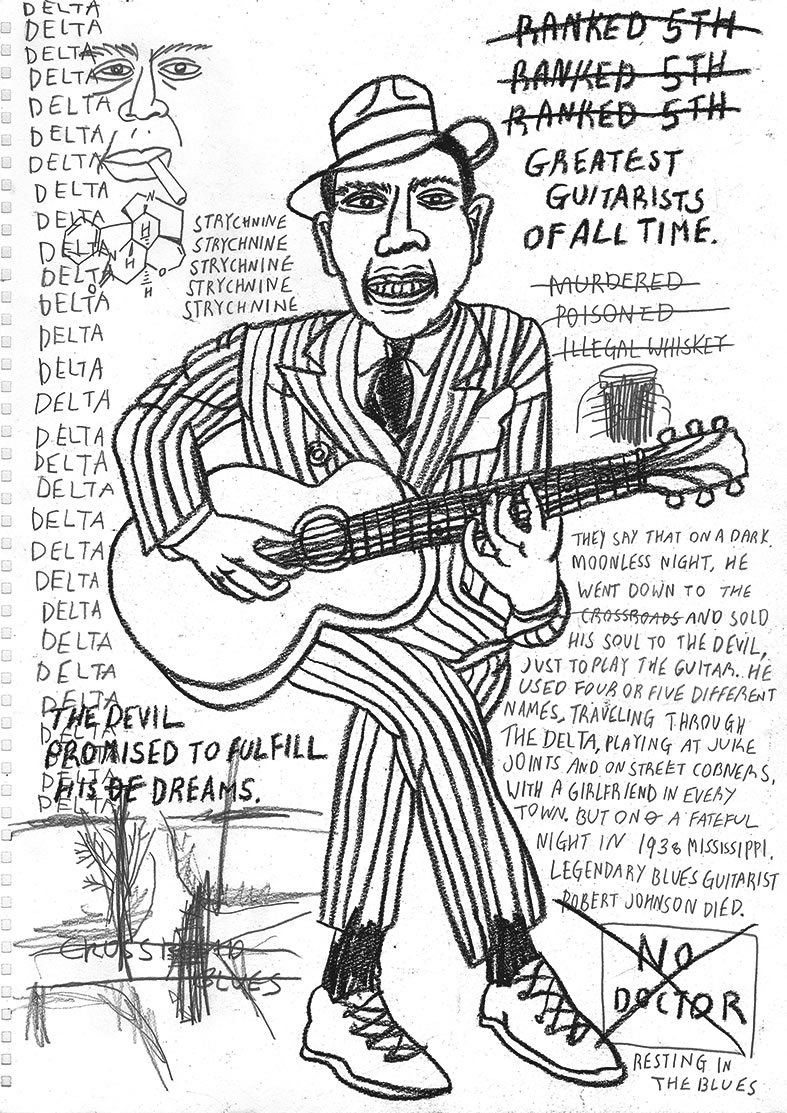 DELTA
DELTA
DELTA
DELTA
DELTA
DELTA
DELTA
DELTA
DELTA
DELTA
DELTA
DELTA
DELTA
DELTA
DELTA
DELTA
DELTA
DELTA
DELTA
DELTA
DELTA
DELTA
DELTA
DELTA
DELTA
DELTA
DELTA
DELTA
DELTA
STRYCHNINE
STRYCHNINE
STRYCHNINE
STRYCHNINE
STRYCHNINE
N
H
H
H
H
O
O
RANKED 5TH
RANKED 5TH
RANKED 5TH
GREATEST
GUITARISTS
OF ALL TIME.
MURDERED
POISONED
ILLEGAL WHISKEY
THEY SAY THAT ON A DARK.
MOONLESS NIGHT, HE
WENT DOWN TO THE
CROSSROADS AND SOLD
HIS SOUL TO THE DEVIL,
JUST TO PLAY THE GUITAR. HE
USED FOUR OR FIVE DIFFERENT
NAMES, TRAVELING THROUGH
THE DELTA, PLAYING AT JUKE
JOINTS AND ON STREET CORNERS,
WITH A GIRLFRIEND IN EVERY
TOWN. BUT ON A FATEFUL
NIGHT IN 1938 MISSISSIPPI.
LEGENDARY BLUES GUITARIST
ROBERT JOHNSON DIED.
THE DEVIL
PROMISED TO FULFILL
HIS DREAMS.
CROSSROAD
BLUES
NO
DOCTOR
RESTING IN
THE BLUES